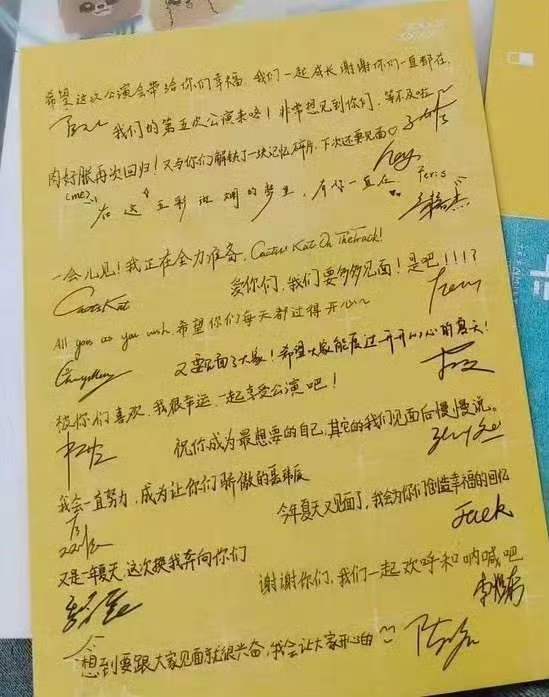 希望这次公演会带给你们幸福，我们一起成长 谢谢你们一直都在.
我们的第五次公演来咯！非常想见到你们，等不及啦
肉好胀再次回归！又与你们解锁了一块记忆碎片，下次还要见面♡
(ME)
在这 五彩 斑斓的梦里，有你一直在
Feris
一会儿见！我正在全力准备，Cactus Kat On The Track!
Cactus Kat
爱你们，我们要多多见面！是吧！！！？
All goes as you wish. 希望你们每天都过得开心~
又要见面了大家！希望大家能度过一开开心心的夏天！
被你们喜欢，我很幸运，一起享受公演吧！
祝你成为最想要的自己，其它的我们见面后慢慢说。
我会一直努力，成为让你们骄傲的
今年夏天又见面了，我会为你们创造幸福的回忆
Jack
又是一年夏天，这次换我奔向你们
谢谢你们，我们一起欢呼和呐喊吧
想到要跟大家见面就很兴奋，我会让大家开心的